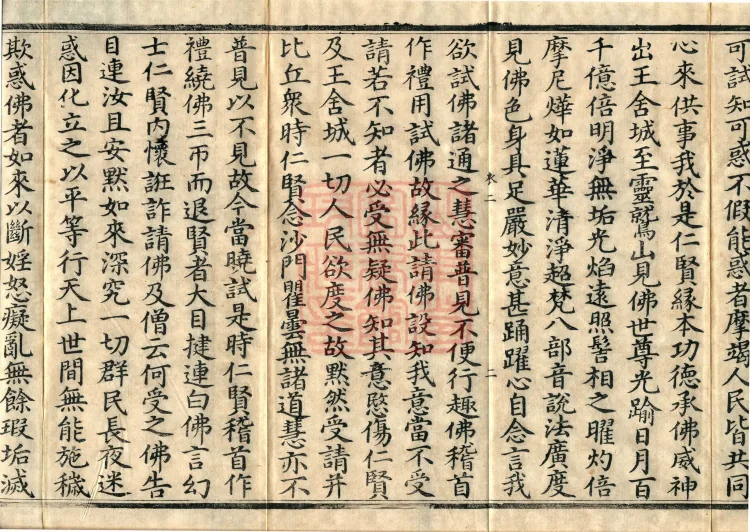 可試知可惑不假能惑者摩竭人民皆共同
心來供事我於是仁賢緣本功德承佛威神
出王舍城至靈鷲山見佛世尊光踰日月百
千億倍明淨無垢光焰遠照髻相之曜灼倍
摩尼燁如蓮華清淨超梵八部音說法廣度
見佛色身具足嚴妙意甚踊躍心自念言我
欲試佛諸通之慧審普見不便行趣佛稽首
作禮用試佛故緣此請佛設知我意當不受
請若不知者必受無疑佛知其意愍傷仁賢
及王舍城一切人民欲度之故默然受請并
比丘眾時仁賢念沙門瞿曇無諸道慧亦不
普見以不見故今當曉試是時仁賢稽首作
禮繞佛三帀而退賢者大目揵連白佛言幻
士仁賢內懷誑詐請佛及僧云何受之佛告
目連汝且安默如來深究一切群民長夜迷
惑因化立之以平等行天上世間無能施穢
欺惑佛者如來以斷婬怒癡亂無餘瑕垢滅